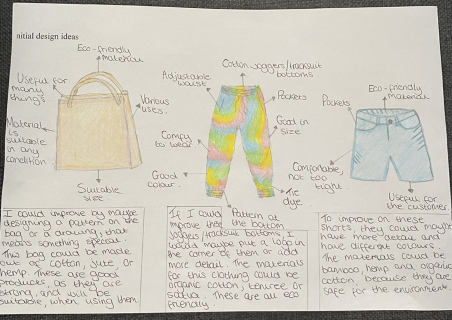 nitial design ideas
Eco-friendly
material
Useful for
many
things
Various
uses.
Material
is
suitable
in any
condition
Suitable
size.
Cotton joggers/tracksuit
bottoms
Adjustable
waist
Pockets
Good in
size
Comfy
to wear
Good
colour.
Tie
dye
Pattern at
the bottom
Eco-friendly
material
Pockets
Comfortable,
not too
tight.
Useful for
the customer
I could improve by maybe
designing a pattern on the
bag or a drawing, that
means something special.
This bag could be made
out of cotton, jute, or
hemp. These are good
products, as they are
strong, and will be
suitable, when using them.
If I could
improve these
joggers/tracksuit bottoms, I
would maybe put a logo in
the corner of them or add
more detail. The materials
for this clothing could be
organic cotton, tencree or
These are all eco
friendly.
To improve on these
shorts, they could maybe
have more detail and
have different colours.
The materials could be
bamboo, hemp and organic
cotton, because they are
safe for the environment.